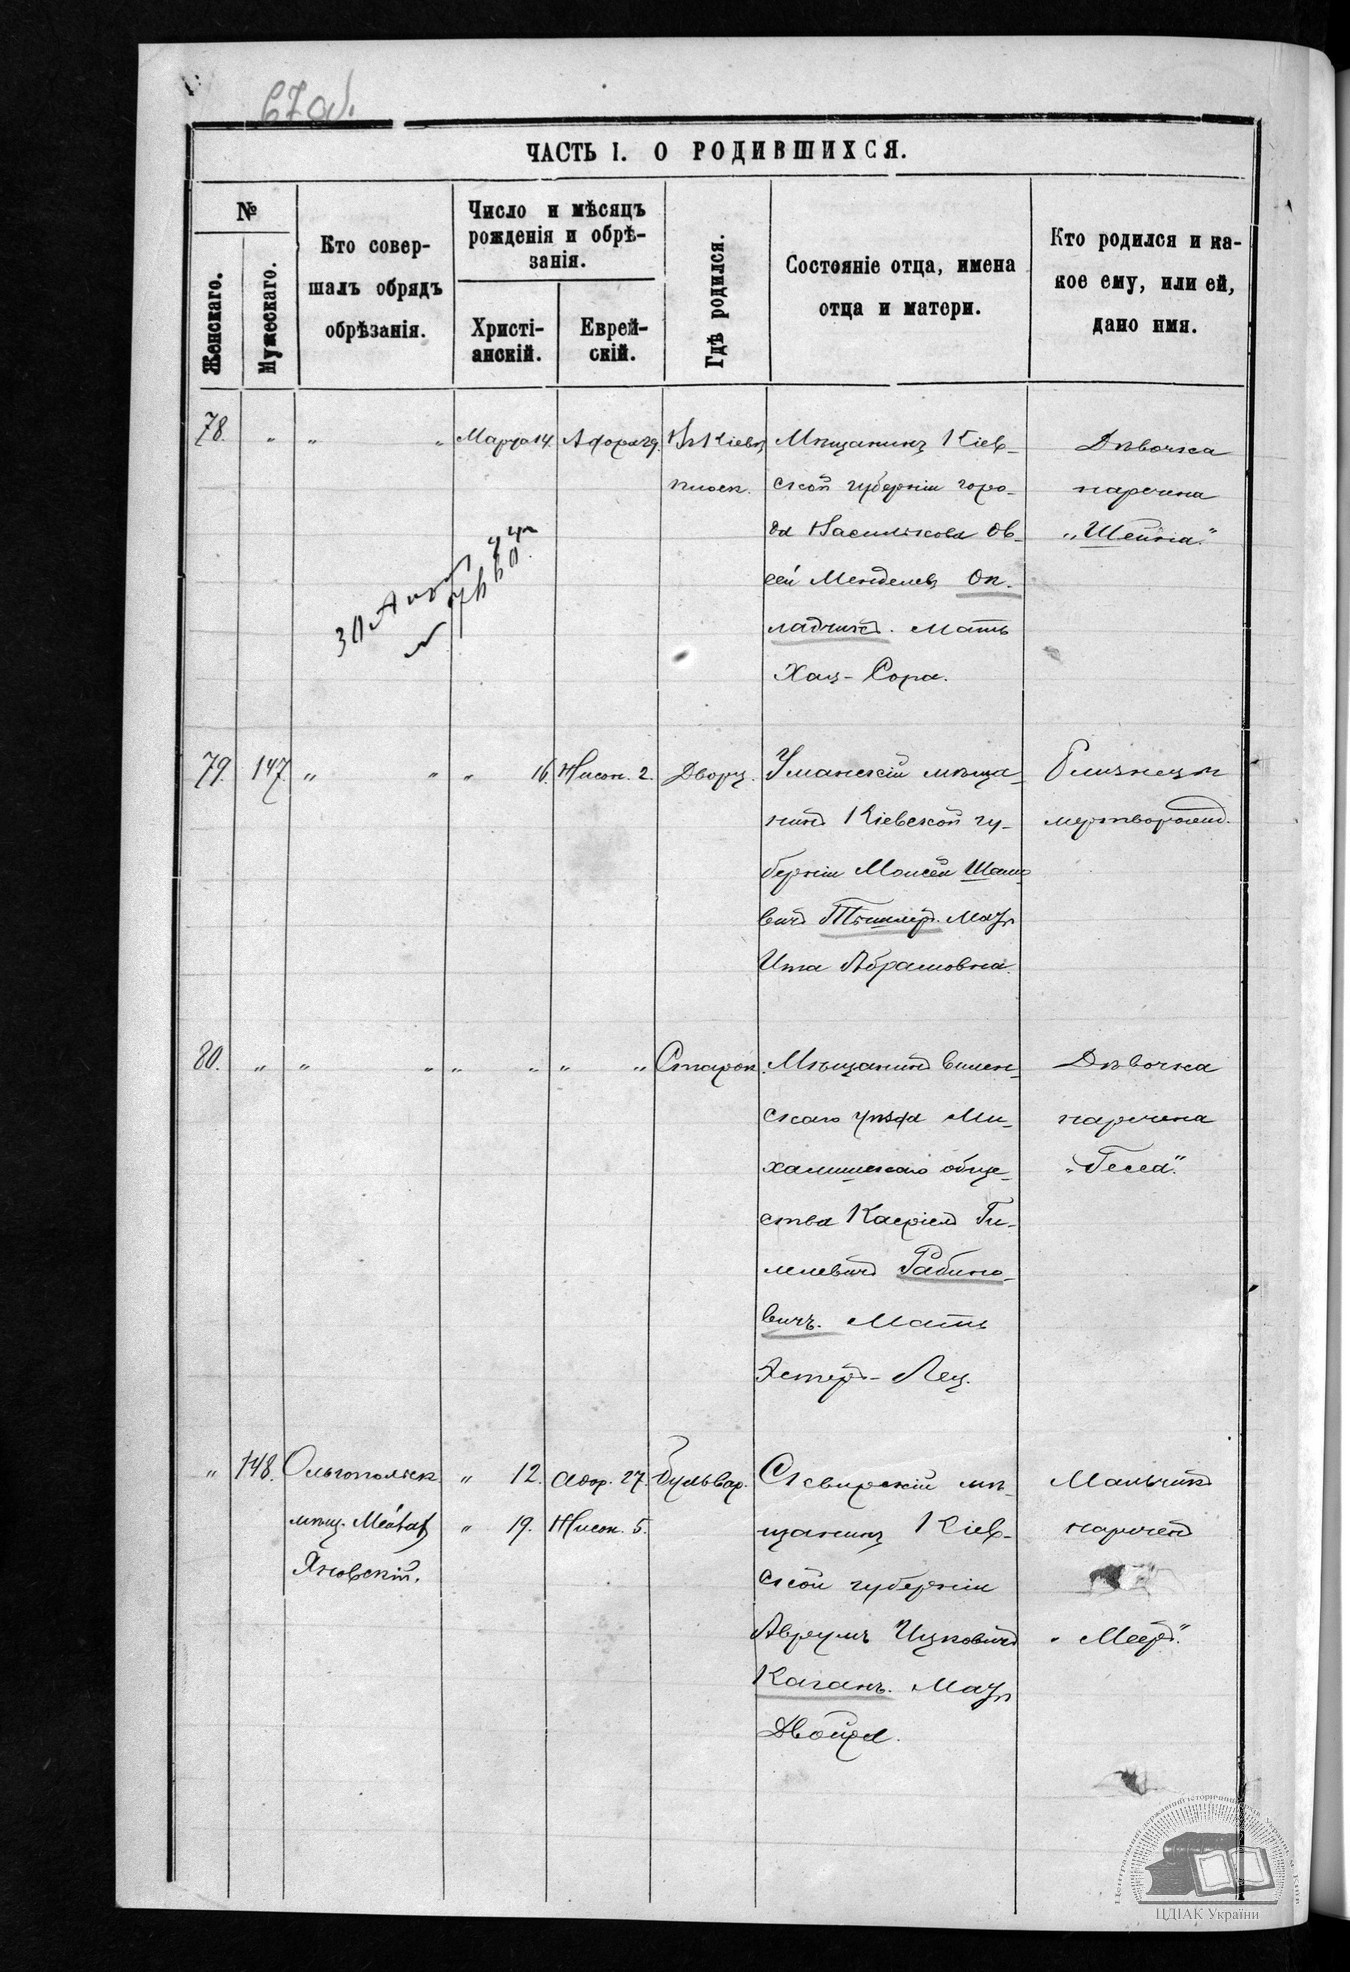 67 об.
ЧАСТЬ I. О РОДИВШИХСЯ.
№
Женскаго.
Мужескаго.
Кто совер-
шалъ обрядъ
обрѣзанія.
Число и мѣсяцъ
рожденія и обрѣ-
занія.
Христі-
анскій.
Еврей-
скій.
Гдѣ родился.
Состояніе отца, имена
отца и матери.
Кто родился и ка-
кое ему, или ей,
дано имя.
78. " " " Марта 14. Адора 29. Въ Кіевѣ
плоск.
Мѣщанинъ Кіев-
ской губерніи горо-
да Василькова Ов-
сей Менделевъ
Мать
Хая-Сора.
Дѣвочка
наречена
„Шейна."
79. 147 " " " 16. Нисон. 2. Дворц.
Уманскій мѣща-
нинъ Кіевской гу-
берніи Моисей
Мать
Ита Абрамовна.
Близнецы
мертворожд.
80. " " " " " " " Старок.
Мѣщанинъ вилен-
скаго уѣзда Ми-
халишскаго обще-
ства Касріель Ги-
лелевичъ Рабино-
вичъ. Мать
Эстеръ-Лея.
Дѣвочка
наречена
„Геся".
" 148. Ольгопольск. " 12. Адор. 27. Бульвар.
мѣщ. " 19. Нисон. 5.
Яновскій.
Сквирскій мѣ-
щанинъ Кіев-
ской губерніи
Авреумъ Ицковичъ
Каганъ. Мать
Двойра.
Мальчикъ
нареченъ
„Мееръ."
ЦДІАК України